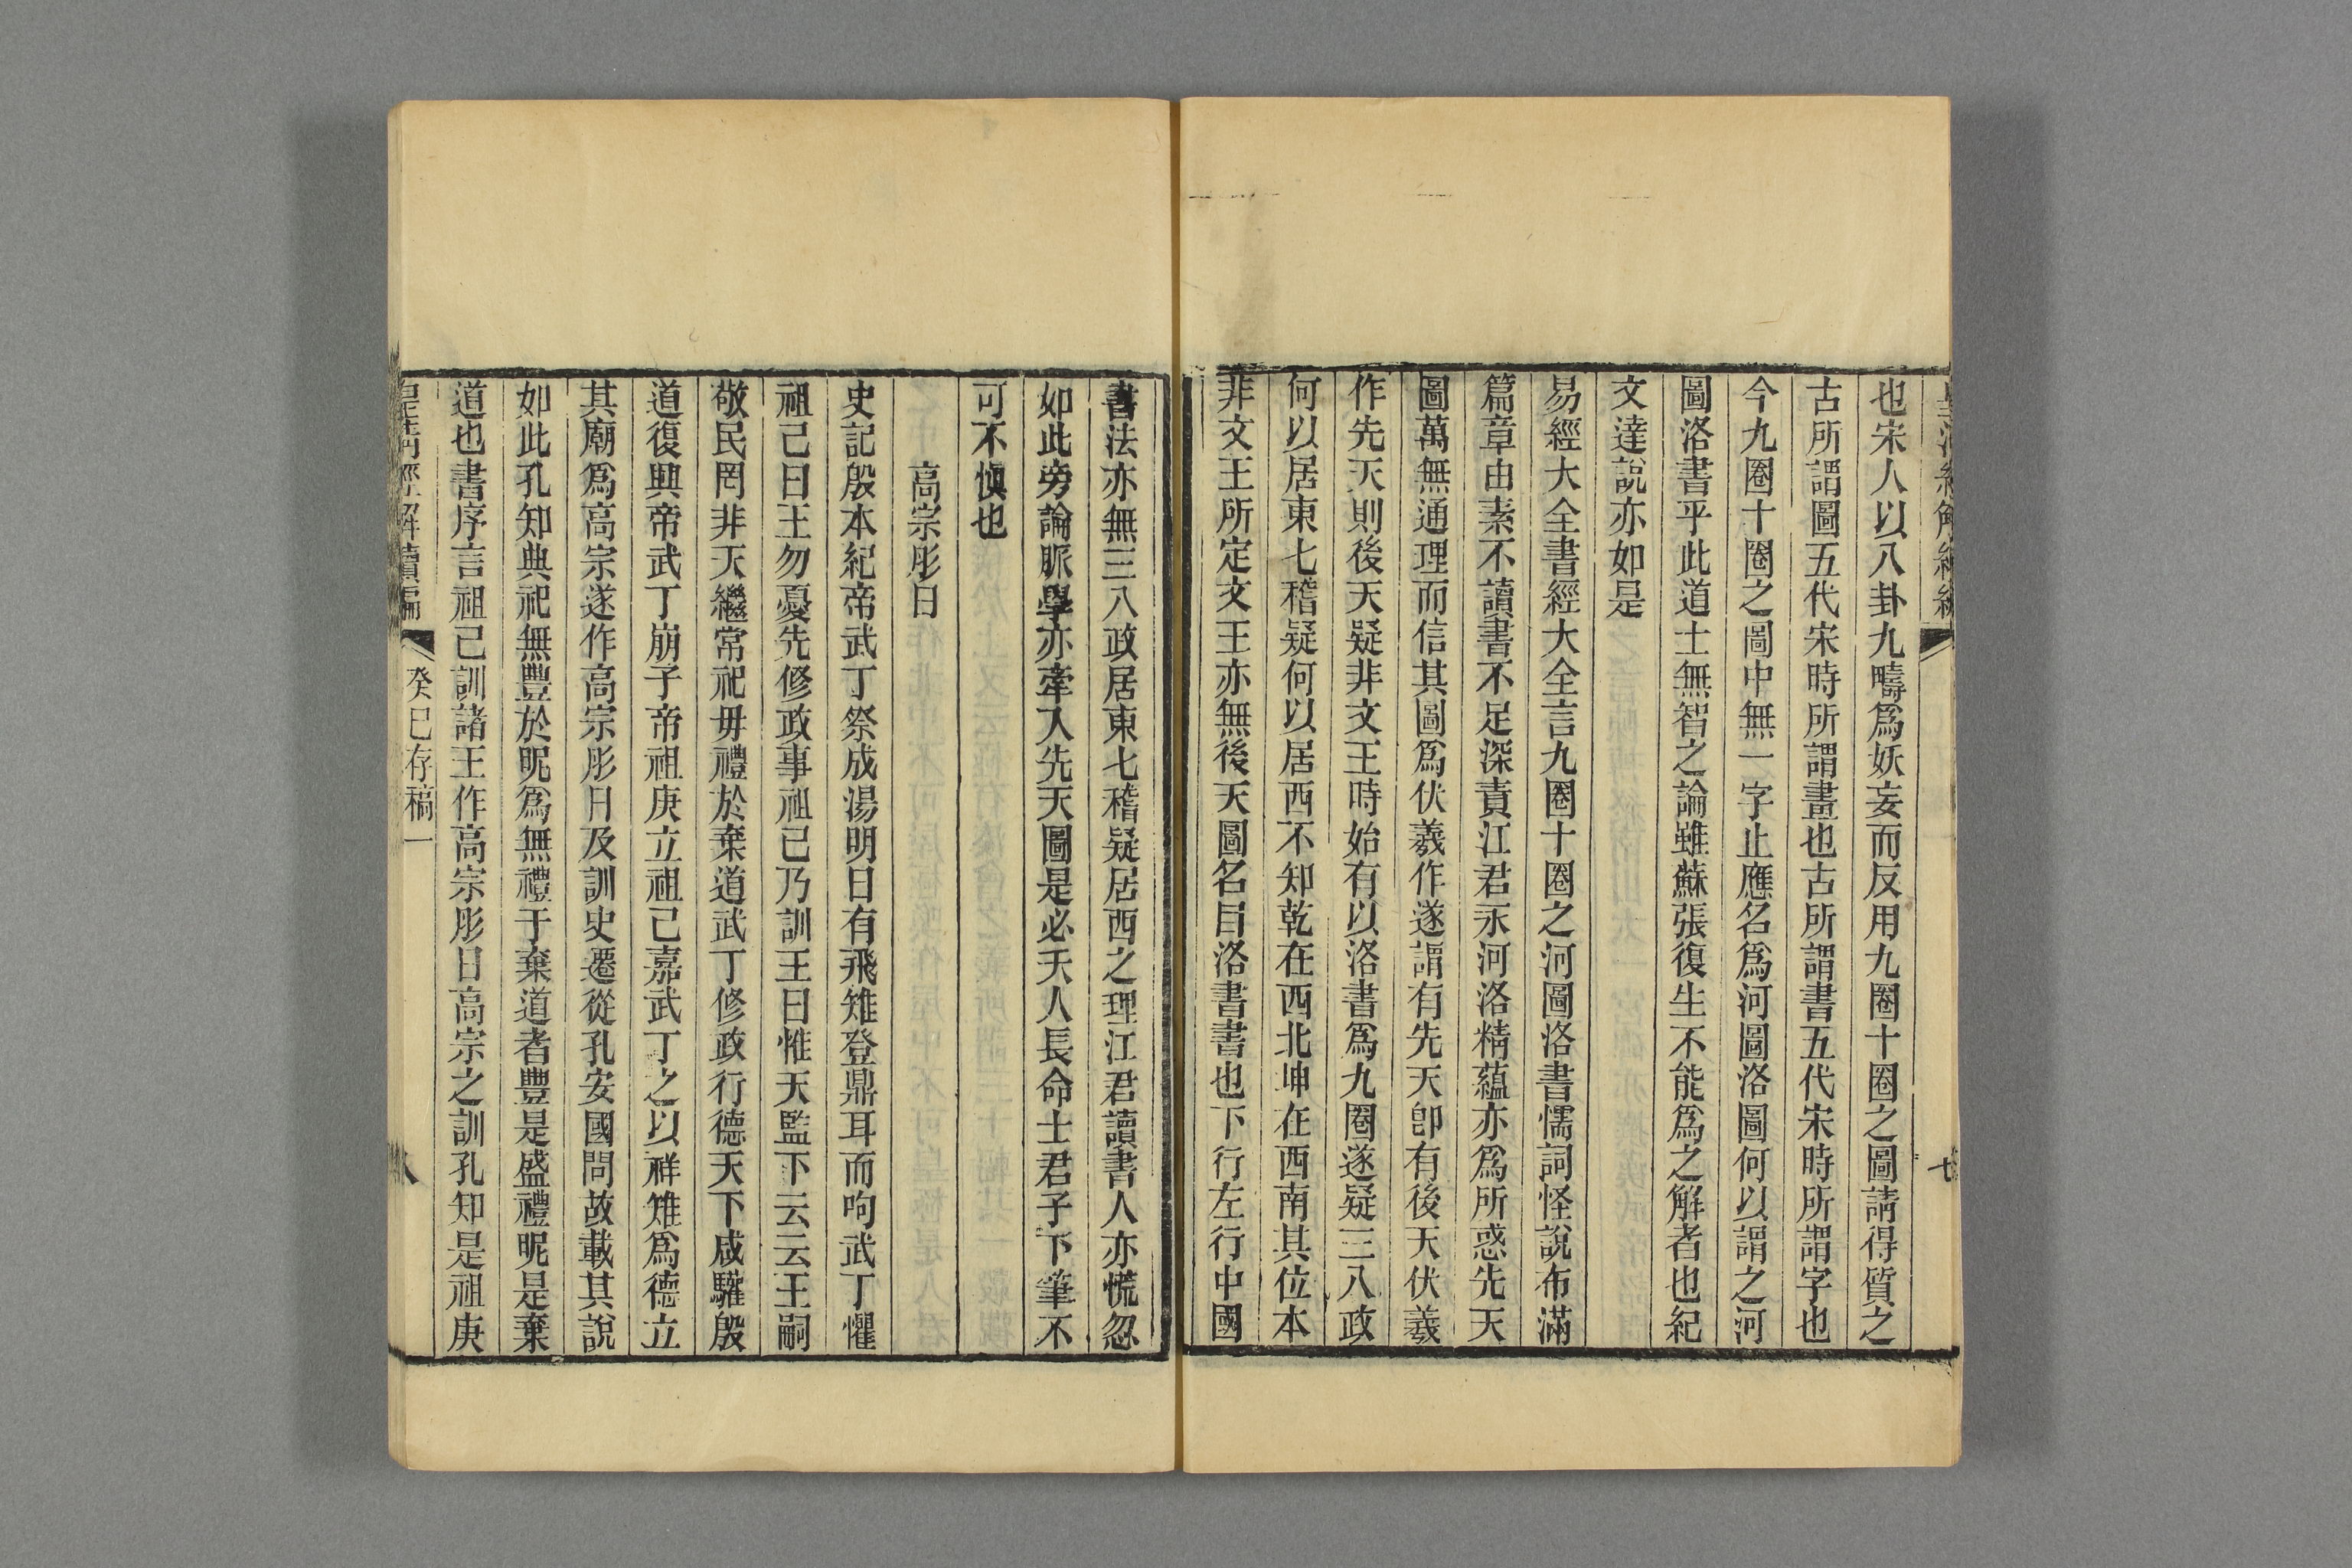 皇清經解續編
七
也宋人以八卦九疇爲妖妄而反用九圈十圈之圖請得質之
古所謂圖五代宋時所謂畫也古所謂書五代宋時所謂字也
今九圈十圈之圖中無一字止應名爲河圖洛圖何以謂之河
圖洛書乎此道士無智之論雖蘇張復生不能爲之解者也紀
文達說亦如是
易經大全書經大全言九圈十圈之河圖洛書懦詞怪說布滿
篇章由素不讀書不足深責江君永河洛精蘊亦爲所惑先天
圖萬無通理而信其圖爲伏羲作遂謂有先天卽有後天伏羲
作先天則後天疑非文王時始有以洛書爲九圈遂疑三八政
何以居東七稽疑何以居西不知乾在西北坤在西南其位本
非文王所定文王亦無後天圖名目洛書書也下行左行中國
書法亦無三八政居東七稽疑居西之理江君讀書人亦慌忽
如此旁論脈學亦牽入先天圖是必天人長命士君子下筆不
可不愼也
高宗肜日
史記殷本紀帝武丁祭成湯明日有飛雉登鼎耳而呴武丁懼
祖己曰王勿憂先修政事祖己乃訓王曰惟天監下云云王嗣
敬民罔非天繼常祀毋禮於棄道武丁修政行德天下咸驩殷
道復興帝武丁崩子帝祖庚立祖己嘉武丁之以祥雉爲德立
其廟爲高宗遂作高宗肜日及訓史遷從孔安國問故載其說
如此孔知典祀無豐於昵爲無禮于棄道者豐是盛禮昵是棄
道也書序言祖己訓諸王作高宗肜日高宗之訓孔知是祖庚
皇淸經解續編
癸巳存稿一
八